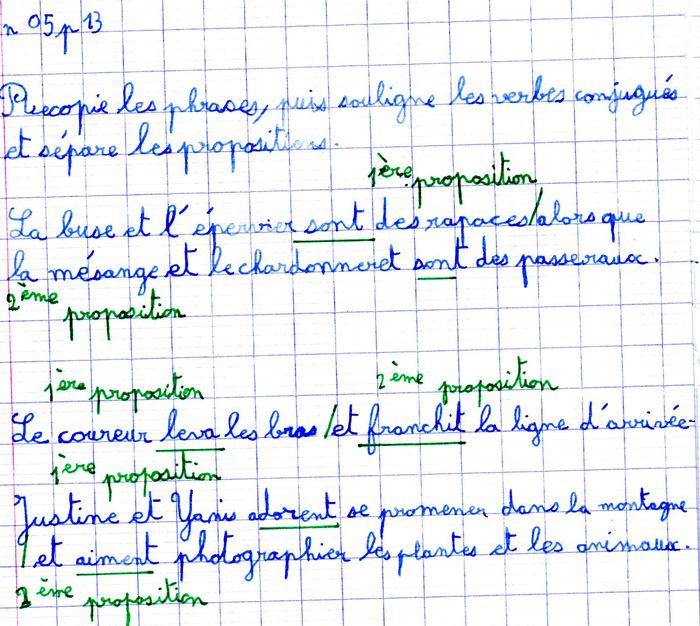 n°95 p 13
Recopie les phrases, puis souligne les verbes conjugués
et sépare les propositions.
1ère proposition
La buse et l'épervier sont des rapaces/alors que
la mésange et le chardonneret sont des passeraux.
2ème proposition
1ère proposition 2ème proposition
Le coureur leva les bras /et franchit la ligne d'arrivée
1ère proposition
Justine et Yanis adorent se promener dans la montagne
/et aiment photographier les plantes et les animaux.
2ème proposition